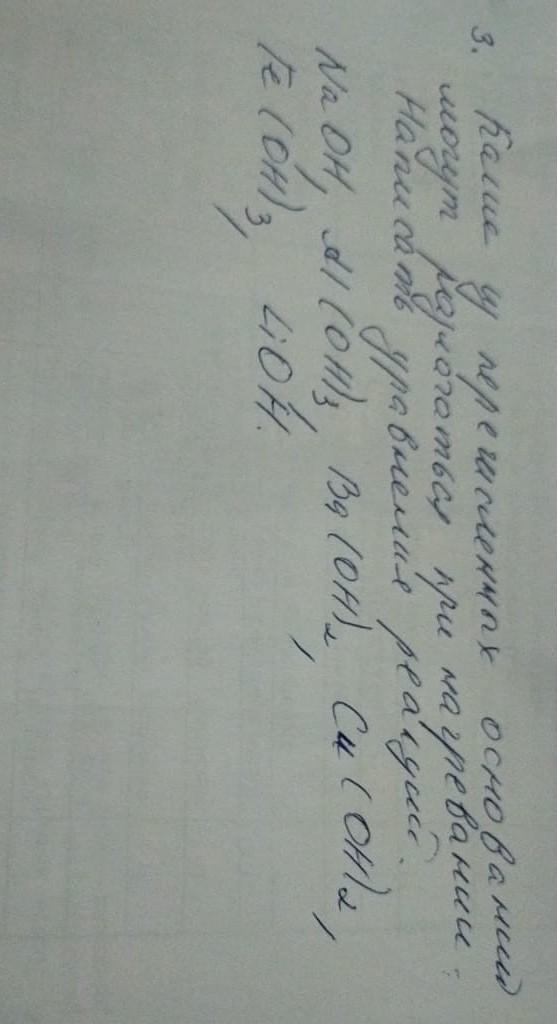 3. Какие из перечисленных оснований
могут разлагаться при нагревании:
Написать уравнение реакций.
NaOH, Al(OH)3, Ba(OH)2, Cu(OH)2,
Fe(OH)3, LiOH.